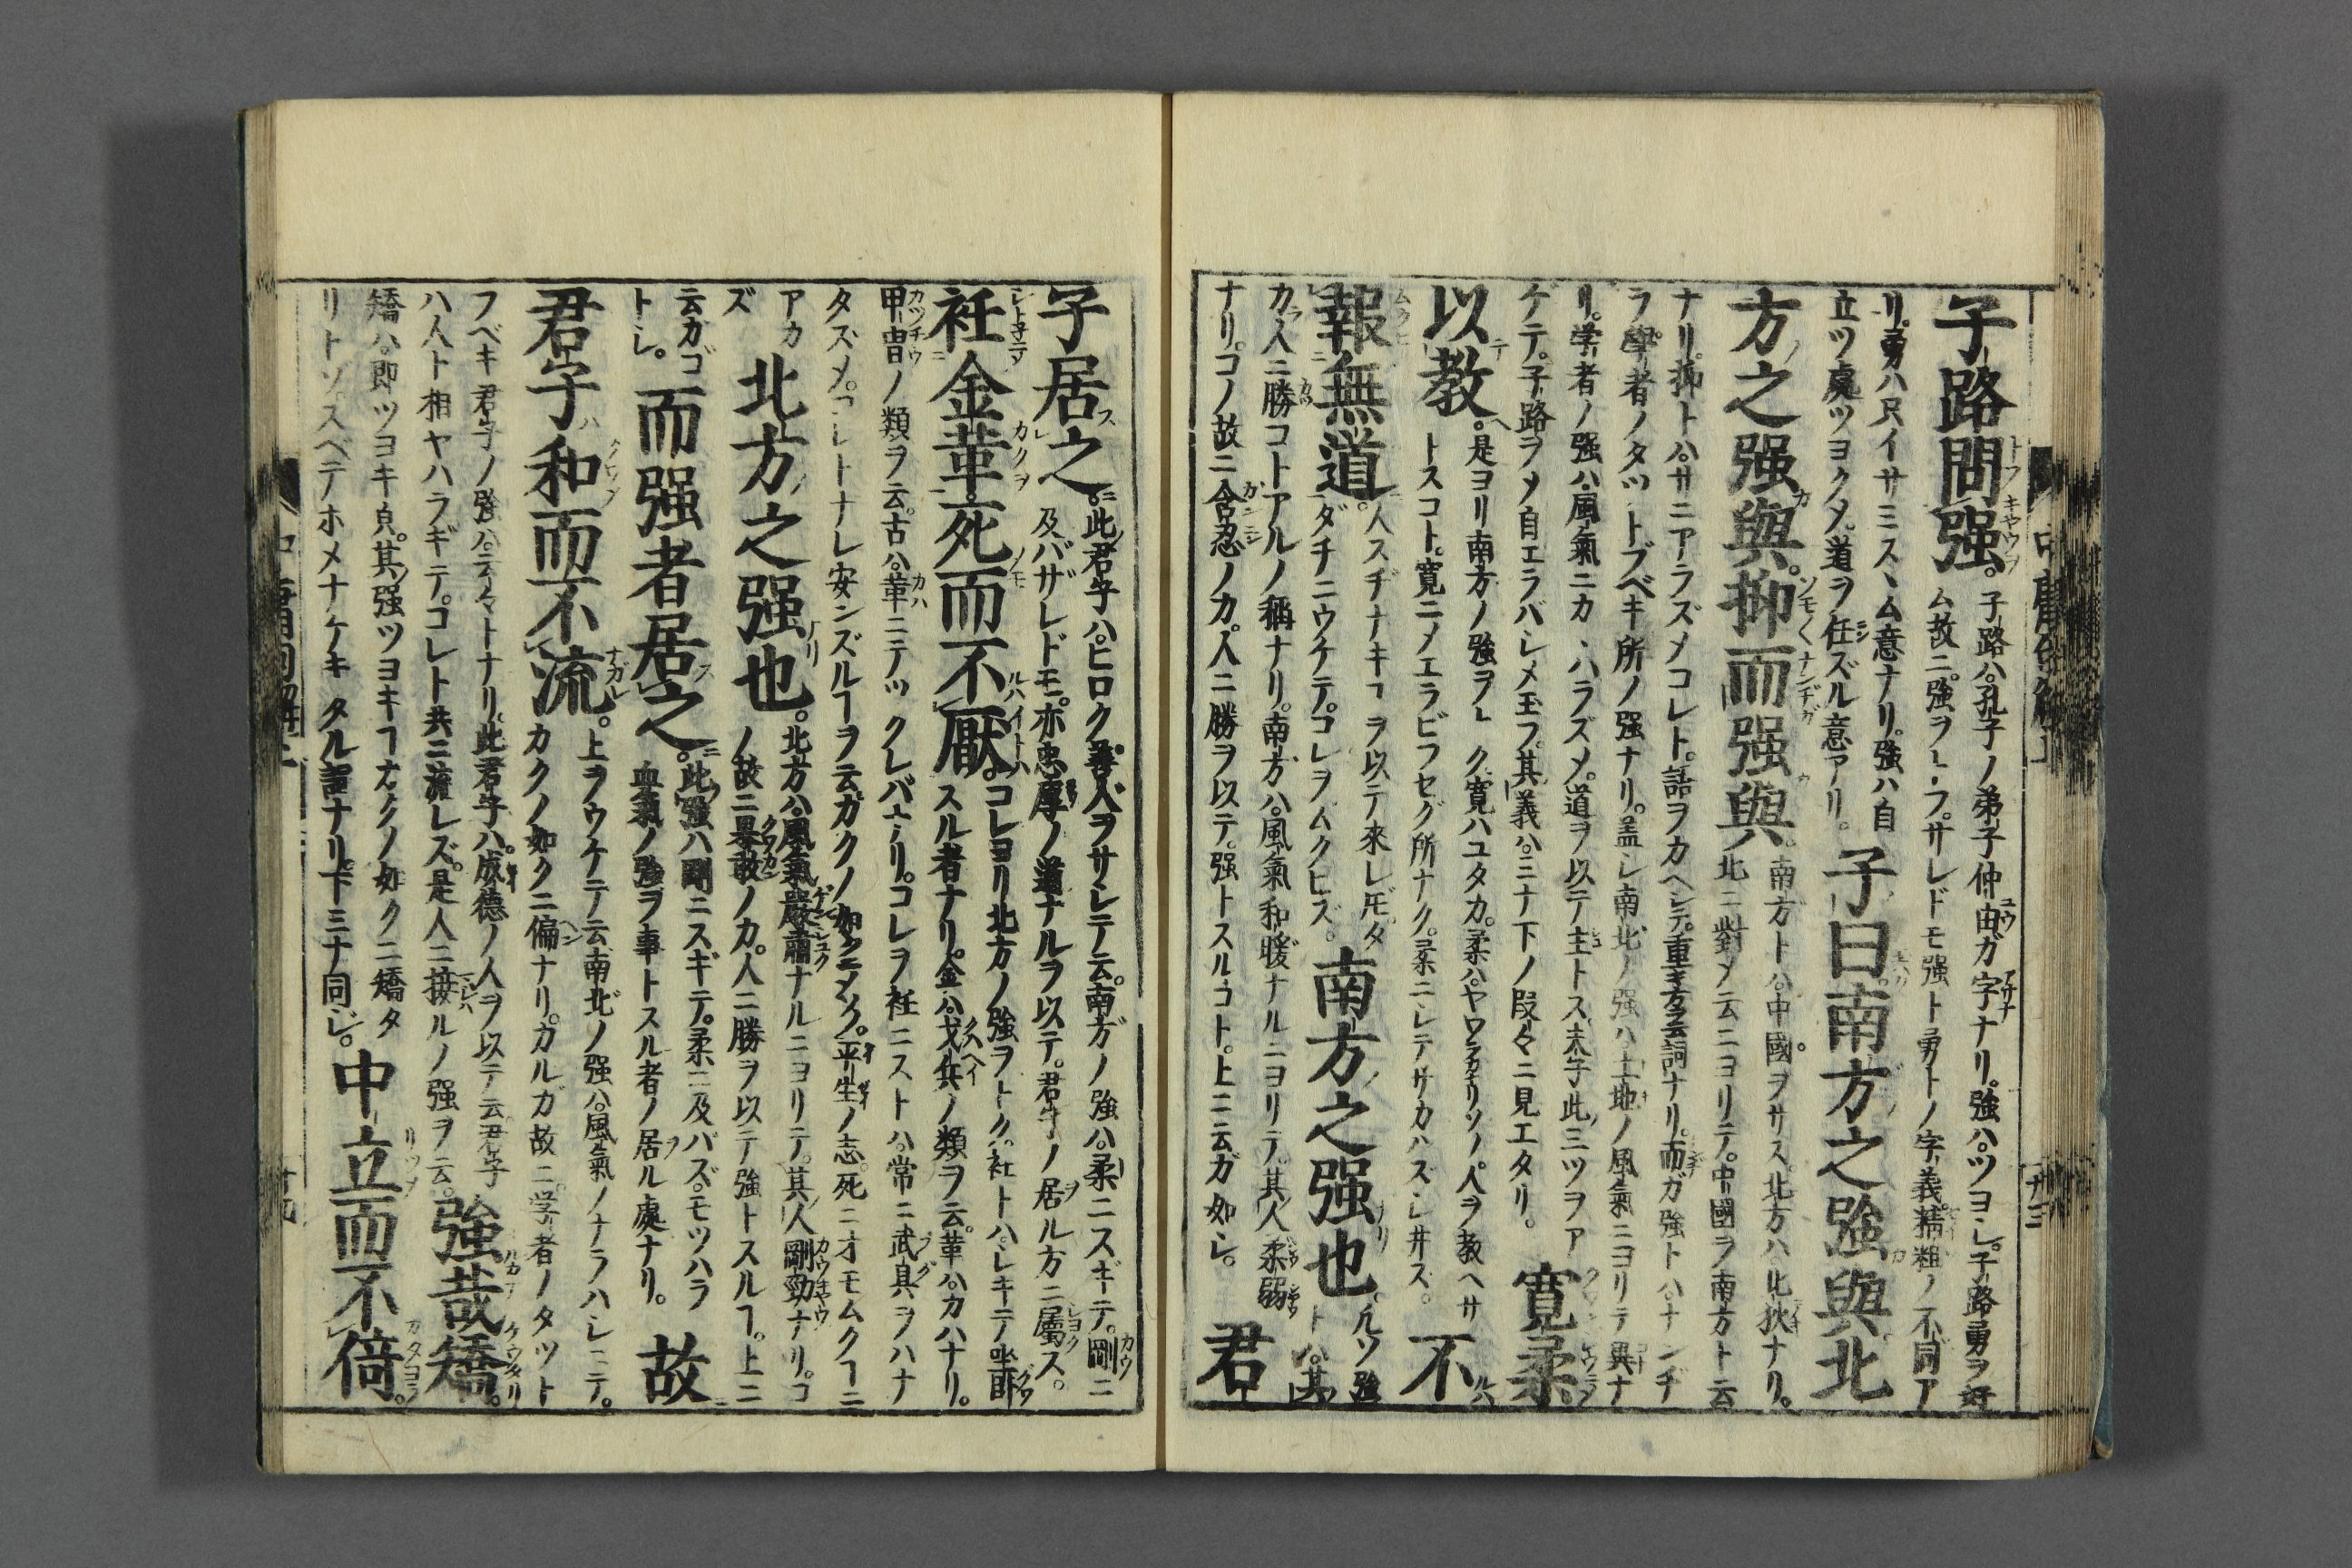 子路問强。
子路ハ孔子ノ弟子仲由ガ字ナリ。强ハツヨシ。子路勇ヲ好
ム故ニ强ヲトフ。サレドモ强ト勇トノ字義精粗ノ不同ア
リ。勇ハ只イサミスヽム意ナリ。强ハ自
立ツ處ツヨクメ。道ヲ任ズル意アリ。
子曰南方之强與北
方之强與。抑而强與。
南方トハ中國ヲサス。北方ハ北狄ナリ。
北ニ對メ云ニヨリテ。中國ヲ南方ト云
ナリ。抑トハサニアラズメコレト。語ヲカヘシテ。重テ云詞ナリ。而ガ强トハナンヂ
ラ學者ノタツトブベキ所ノ强ナリ。蓋シ南北ノ强ハ土地ノ風氣ニヨリテ異ナ
リ。学者ノ强ハ風氣ニカヽハラズメ。道ヲ以テ主トス。夫子此三ツヲア
ゲテ。子路ヲメ自エラバシメ玉フ。其義ハ三ナ下ノ段々ニ見エタリ。
寬柔
以教。
是ヨリ南方ノ强ヲトク。寬ハユタカ。柔ハヤワラカナリ。ソノ人ヲ教ヘサ
トスコト。寬ニメエラビフセグ所ナク。柔ニシテサカハズシ井ズ。
不
報無道。
人スヂナキヿヲ以テ來レドモ。タ
ダチニウケテ。コレヲムクヒズ。
南方之强也。
凡ソ强
トハ其
カ人ニ勝コトアルノ稱ナリ。南方ハ風氣和暖ナルニヨリテ。其人柔弱
ナリ。コノ故ニ含忍ノ力。人ニ勝ヲ以テ。强トスルコト。上ニ云ガ如シ。
君
子居之。
此君子ハヒロク善人ヲサシテ云。南方ノ强ハ柔ニスギテ。剛ニ
及バザレドモ。亦忠厚ノ道ナルヲ以テ。君子ノ居ル方ニ屬ス。
衽金革死而不厭。
コレヨリ北方ノ强ヲトク。衽トハシキテ坐臥
スル者ナリ。金ハ戈兵ノ類ヲ云。革ハカハナリ。
甲冑ノ類ヲ云。古ハ革ニテツクレバナリ。コレヲ衽ニストハ常ニ武具ヲハナ
タズメ。コレトナレ安ンズルヿヲ云。ガクノ如クニメソ。平生ノ志。死ニオモムクヿニ
アカ
ズ
北方之强也。
北方ハ風氣嚴肅ナルニヨリテ。其人剛勁ナリ。コ
ノ故ニ果敢ノ力。人ニ勝ヲ以テ强トスルヿ。上ニ
云カゴ
トシ。
而强者居之。
此强ハ剛ニスギテ。柔ニ及バズ。モツハラ
血氣ノ强ヲ事トスル者ノ居ル處ナリ。
故
君子和而不流。
上ヲウケテ云。南北ノ强ハ風氣ノナラハシニテ。
カクノ如クニ偏ナリ。カルガ故ニ学者ノタツト
フベキ君子ノ强ハ云々トナリ。此君子ハ成德ノ人ヲ以テ云。君子
ハ人ト相ヤハラギテ。コレト共ニ流レズ。是人ニ接ルノ强ヲ云。
強哉矯。
矯ハ即ツヨキ皃。其强ツヨキヿカクノ如クニ矯タ
リトソ。スベテホメナゲキタル詞ナリ。下三ナ同ジ。
中立而不倚。